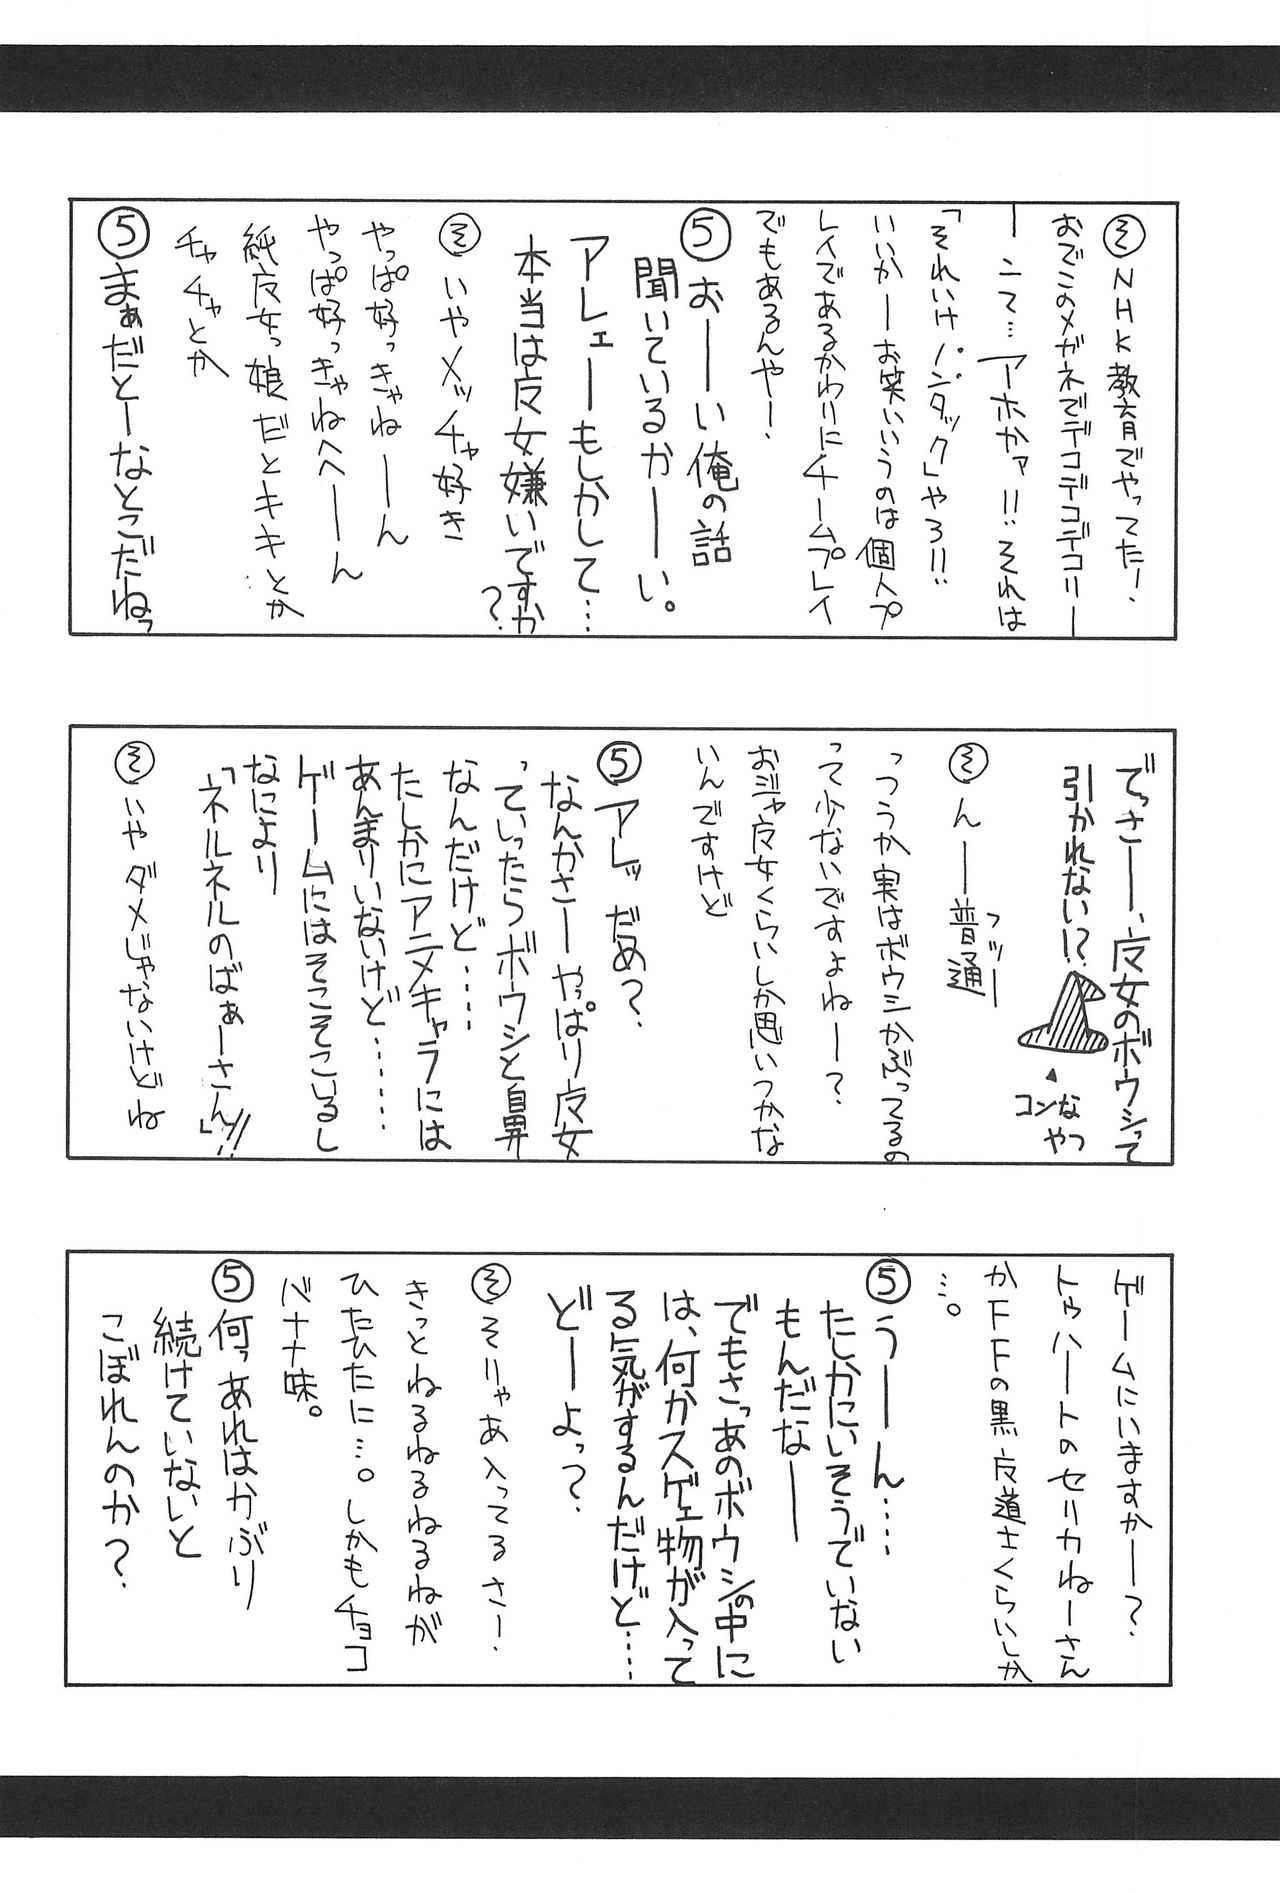 ㋞NHK教育でやってた!
おでこのメガネでデコデコデコリー
ーニて…アーホかァ!!それは
「それいけノンタック」やろ!!
いいかーお笑いいうのは個人プ
レイであるかわりにチームプレイ
でもあるんやー!
⑤おーい俺の話
聞いているかーい。
アレェーもしかして…
本当は広女嫌いですか?
㋞いやメッチャ好き
やっぱ好っきゃねーん
やっぱ好っきゃねへーん
純広女っ娘だとキキとか
チャチャとか
⑤まぁだとーなとこだねっ
でっさー、広女のボウシって
引かれない!?
コンな
やつ
㋞んー普通
フツー
っつうか実はボウシかぶってるの
って少ないですよねー?
おジャ広女くらいしか思いつかな
いんですけど
⑤アレッだめ?
なんかさーやっぱり広女
っていったらボウシと自昇
なんだけど……
たしかにアニメキャラには
あんまりいないけど……
ゲームにはそこそこいるし
なにより
「ネルネルのばぁーさん」!!
㋞いやダメじゃないけどね
ゲームにいますかー?
トゥハートのセリカねーさん
かFFの黒广道士くらいしか
…。
⑤うーん……
たしかにいそうでいない
もんだなー
でもさっあのボウシの中に
は、何かスゲェ物が入って
る気がするんだけど…
どーよっ?
㋞そりゃあ入ってるさー!
きっとねるねるねるねが
ひたひたに…。しかもチョコ
バナナ味。
⑤何っあれはかぶり
続けていないと
こぼれんのか?